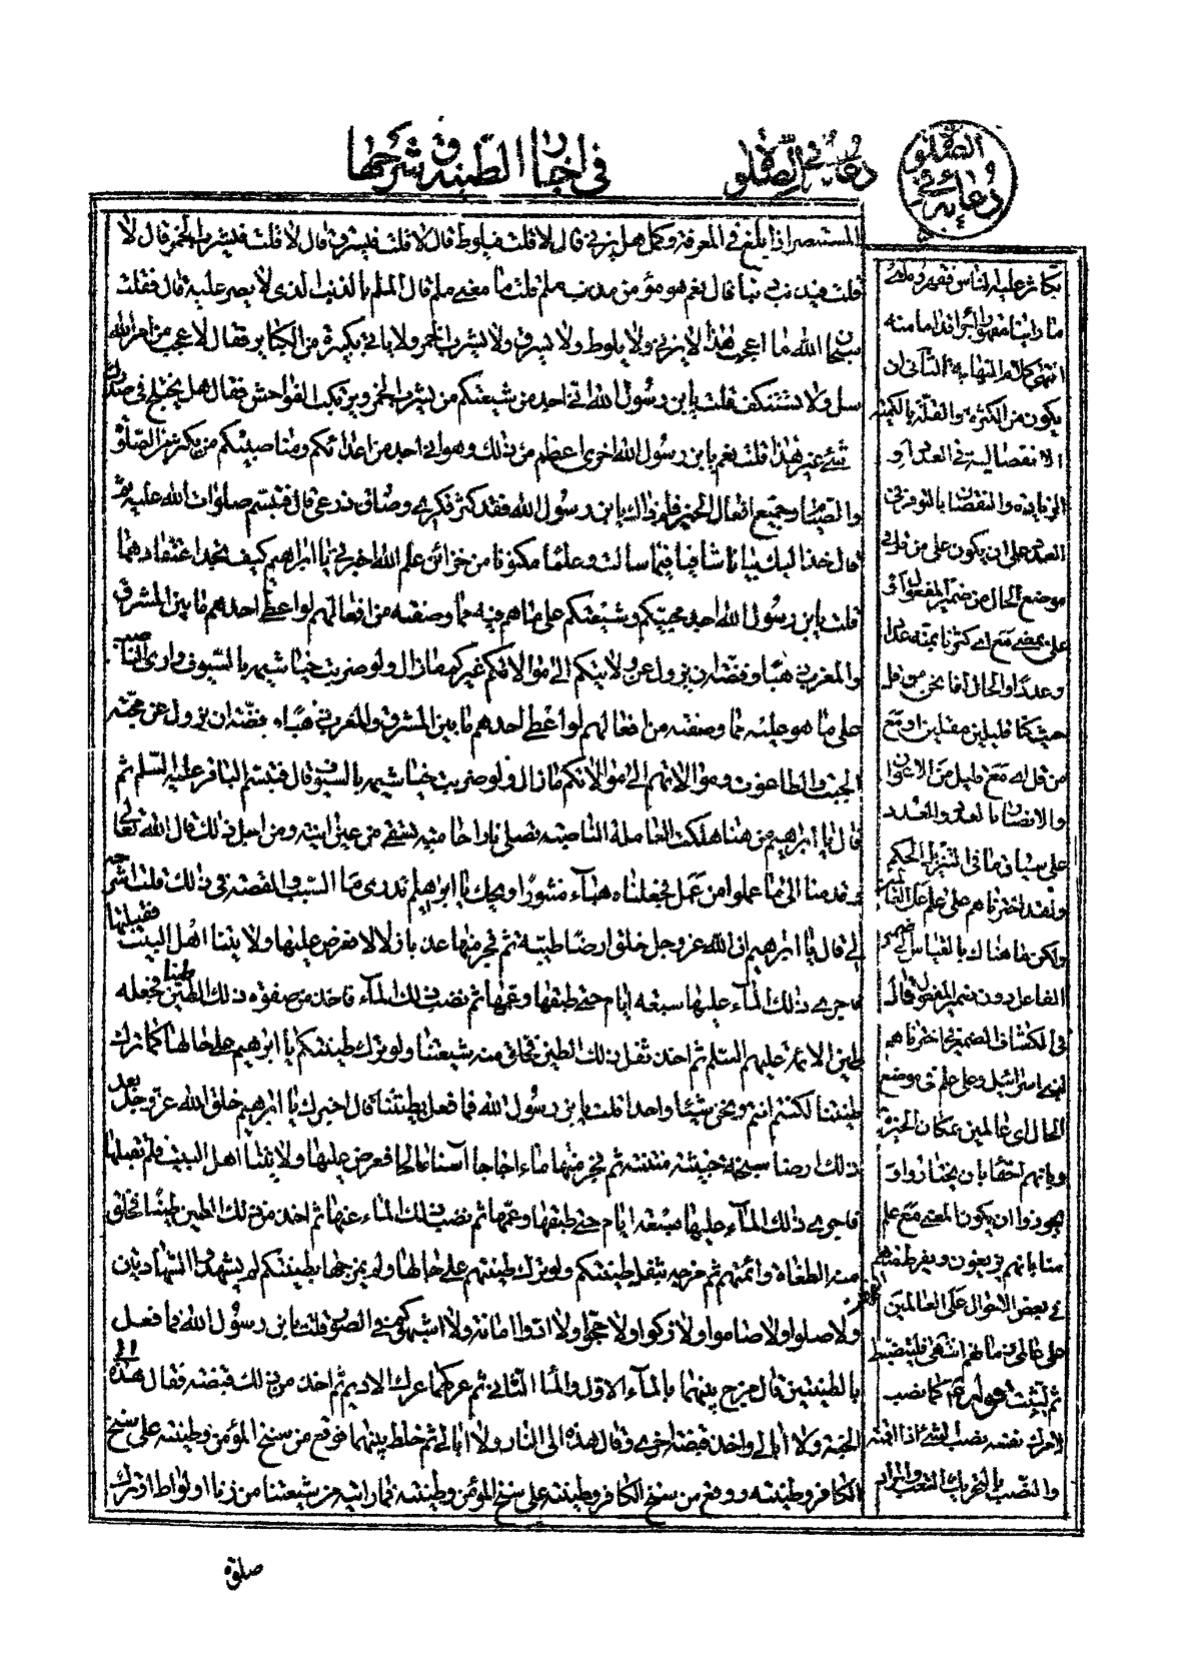 في اخبار الطينة و شرحها
دعائه في الصلوة
الصلوة و دعائه في
المستبصر اذا بلغ في المعرفة وكمل هل يزني قال لا قلت فيلوط قال لا قلت فيسرق قال لا قلت فيشرب الخمر قال لا
قلت فيذنب ذنبا قال نعم هو مؤمن مذنب ملم قلت ما معنى ملم قال الملم بالذنب الذى لا يصر عليه قال فقلت
سبحان الله ما اعجب هذا لا يزني ولا يلوط ولا يسرق ولا يشرب الخمر ولا ياتى بكبيرة من الكبائر فقال لا عجب من امر الله
سل ولا تستنكف قلت يابن رسول الله انى اجد من شيعتكم من يشرب الخمر ويرتكب الفواحش فقال هل يختلج في صدرك
شئ غير هذا قلت نعم يابن رسول الله اخرى اعظم من ذلك وهو انى اجد من اعدائكم ومناصبيكم من يكثر من الصلوة
والصيام وجميع افعال الخير فلم ذاك يابن رسول الله فقد كثر فكرى وضاق ذرعى قال فتبسم صلوات الله عليه ثم
قال خذ اليك بيانا شافيا فيما سالت وعلما مكنونا من خزائن علم الله اخبرني يا ابراهيم كيف تجد اعتقادهما
قلت يابن رسول الله اجد محبيكم وشيعتكم على ما هم فيه مما وصفته من افعالهم لو اعطى احدهم ما بين المشرق
والمغرب ذهبا وفضة ان يزول عن ولايتكم الى موالاة غيركم ما زال ولو ضربت خياشيمه بالسيوف وارى الناصب
على ما هو عليه مما وصفته من افعالهم لو اعطى احدهم ما بين المشرق والمغرب ذهبا و فضة ان يزول عن محبة
الجبت والطاغوت وموالاتهم الى موالاتكم ما زال ولو ضربت خياشيمه بالسيوف قال فتبسم الباقر عليه السلم ثم
قال يا ابراهيم من هنا هلكت العاملة الناصبة تصلى نارا حامية تسقى من عين انية ومن اجل ذلك قال الله تعالى
و قدمنا الى ما عملوا من عمل فجعلناه هباء منثورا ويحك يا ابراهيم تدرى ما السبب والقصة في ذلك قلت اشرحه
لى قال يا ابراهيم ان الله عز وجل خلق ارضا طيبة ثم فجر منها عذبا زلالا فعرض عليها ولايتنا اهل البيت فقبلتها
فاجرى ذلك الماء عليها سبعة ايام حتى طبقها وعمها ثم نضب ذلك الماء فاخذ من صفوة ذلك الطين طينا فجعله
طين الائمة عليهم السلم ثم اخذ ثفل ذلك الطين فخلق منه شيعتنا ولو ترك طينتكم يا ابراهيم على حالها كما ترك
طينتنا لكنتم انتم ونحن شيئا واحدا قلت يابن رسول الله فما فعل بطينتنا قال اخبرك يا ابراهيم خلق الله عز وجل بعد
ذلك ارضا سبخة خبيثة منتنة ثم فجر منها ماء اجاجا آسنا مالحا فعرض عليها ولايتنا اهل البيت فلم تقبلها
فاجرى ذلك الماء عليها سبعة ايام حتى طبقها وعمها ثم نضب ذلك الماء عنها ثم اخذ من ذلك الطين طينا فخلق
منه الطغاة وائمتهم ثم مزجه بثفل طينتكم ولو ترك طينتهم على حالها ولم يمزجها بطينتكم لم يشهدوا الشهادتين
ولا صلوا ولا صاموا ولا زكوا ولا حجوا ولا ادوا امانة ولا اشبهوكم في الصور قلت يابن رسول الله فما فعل
بالطينتين قال مزج بينهما بالماء الاول والماء الثاني ثم عركهما عرك الاديم ثم اخذ من ذلك قبضة فقال هذه الى
الجنة ولا ابالى واخذ قبضة اخرى وقال هذه الى النار ولا ابالى ثم خلط بينهما فوقع من سنخ المؤمن وطينته على سنخ
الكافر وطينته ووقع من سنخ الكافر وطينته على سنخ المؤمن وطينته فما رايته من شيعتنا من زنا او لواط او ترك
صلوة
انتهى كلامه الثاني ان
يكون من الكثرة والقلة بالكمية
الانفصالية في العدد او
الزيادة والنقصان بالتوفر في
العدد على ان يكون على من قلة في
موضع الحال من ضمير المفعول
حيث كنا قليلين مقلين او مع
من قلة مع قليل من الاعوان
والانصار بالعدد والعدد
على سياق ما في التنزيل الحكيم
ولقد اخترناهم على علم على العالمين
ولكن ما هناك بالقياس الى ضمير
الفاعل دون ضمير المفعول قال
في الكشاف الضمير في اخترناهم
لبنى اسرائيل وعلى علم في موضع
الحال اى عالمين بمكان الخيرة
وبانهم احقاء بان يختاروا و
يجوز ان يكون المعنى مع علم
منا بانهم يزيغون ويفرط منهم
في بعض الاحوال على العالمين
على عالمى زمانهم انتهى
والنصب بالتحريك التعب